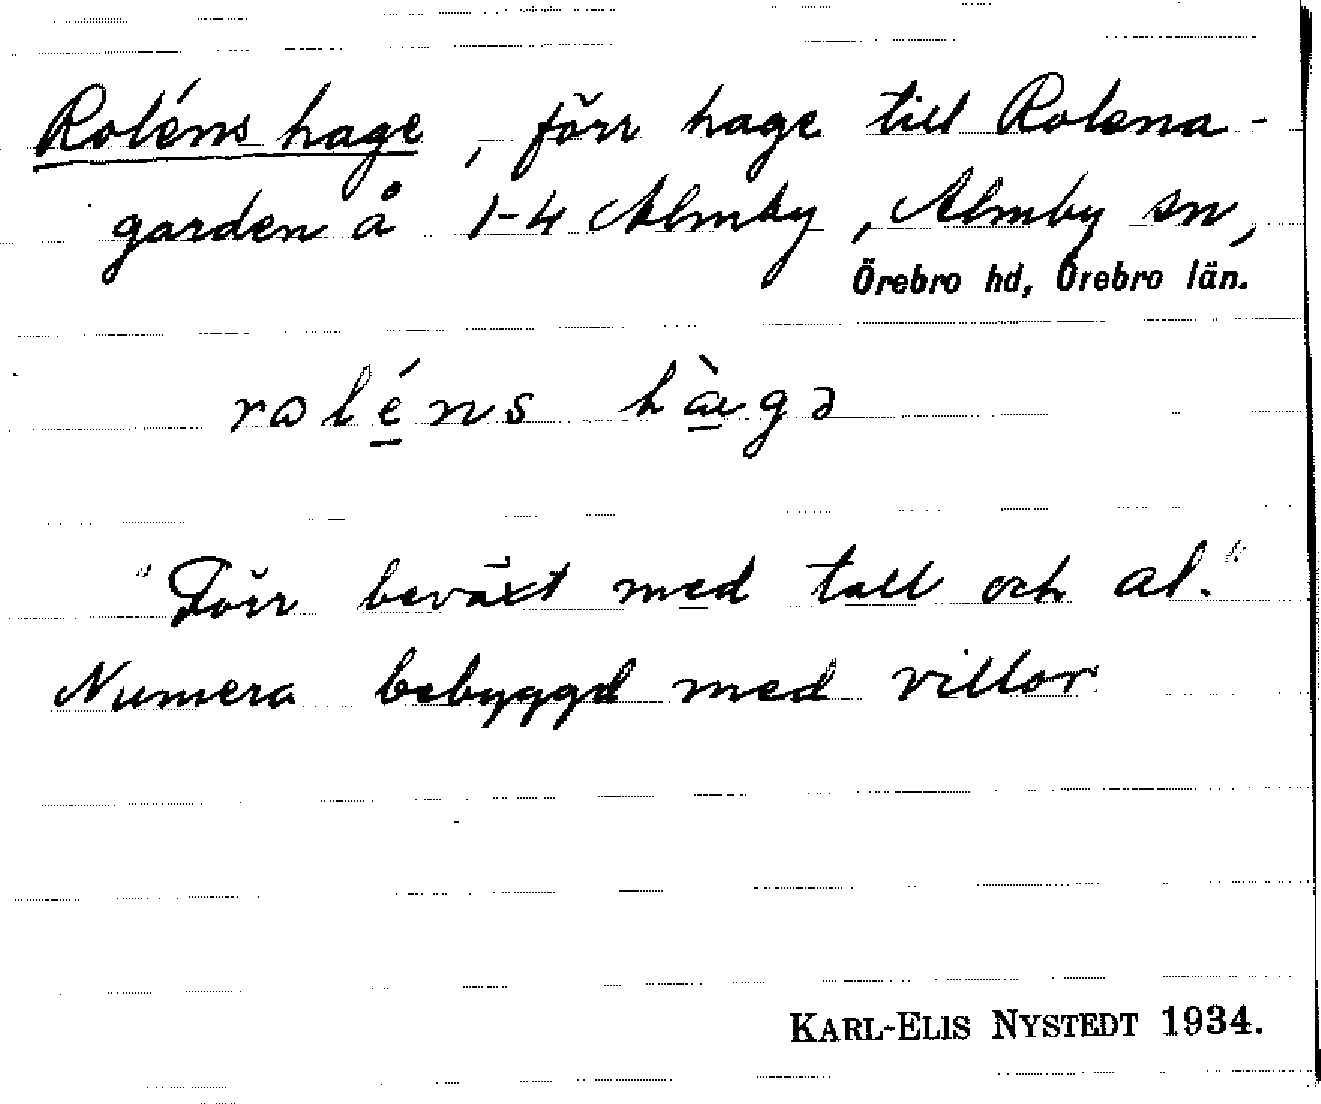 Roléns hage, förr hage till Rolena-
garden å 1-4 Almby, Almby sn,
Örebro hd, Örebro län.
roléns hàgə
"Förr beväxt med tall och al."
Numera bebyggd med villor
KARL-ELIS NYSTEDT 1934.